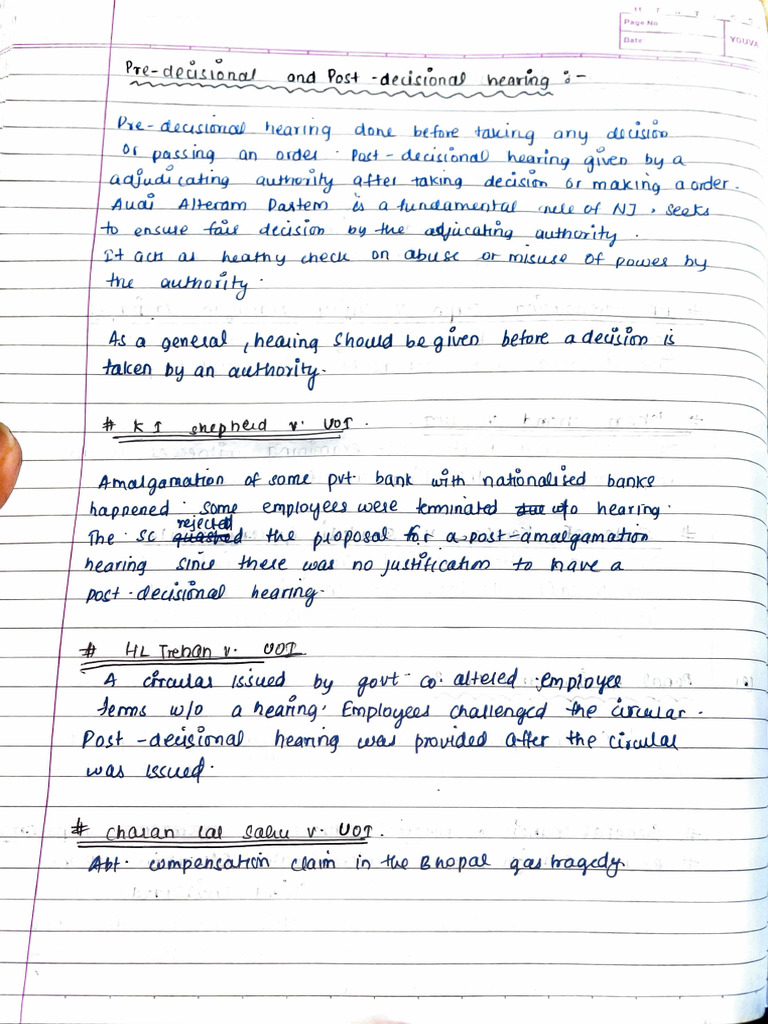 Page No
Date
YOUVA
Pre-decisional and Post-decisional hearing :-
Pre-decisional hearing done before taking any decision
or passing an order. Post-decisional hearing given by a
adjudicating authority after taking decision or making a order.
Audi Alteram Partem is a fundamental rule of NJ, seeks
to ensure fair decision by the adjucating authority.
It acts as heathy check on abuse or misuse of power by
the authority.
As a general, hearing should be given before a decision is
taken by an authority.
# K I Shepherd v. UOI.
Amalgamation of some pvt. bank with nationalised banks
happened. some employees were terminated w/o hearing.
The SC rejected the proposal for a post-amalgamation
hearing since there was no justification to have a
post-decisional hearing.
# HL Trehan v. UOI
A circular issued by govt co. altered employee
terms w/o a hearing. Employees challenged the circular.
Post-decisional hearing was provided after the circular
was issued.
# Charan Lal Sahu v. UOI.
Abt. compensation claim in the Bhopal gas tragedy.